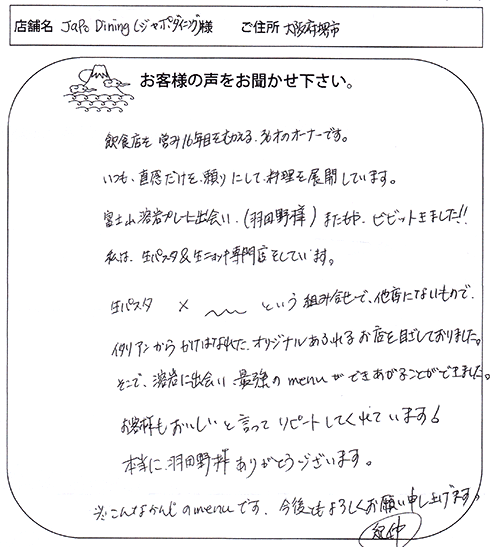 店舗名 JaPo Dining(ジャポダイニング)様 ご住所 大阪府堺市
お客様の声をお聞かせ下さい。
飲食店を営み16年目をむかえる、36才のオーナーです。
いつも、直感だけを頼りにして、料理を展開しています。
富士山溶岩プレートに出会い、(羽田野様)またもや、ビビットきました!!
私は、生パスタ&生ニョッキ専門店をしています。
生パスタ × 〜〜 という組み合せで、他店にないもので、
イタリアンからかけはなれた、オリジナルあふれるお店を目ざしておりました。
そこで、溶岩に出会い最強のmenuができあがることができました。
お客様もおいしいと言ってリピートしてくれています!
本当に、羽田野様ありがとうございます。
※こんなかんじのmenuです、今後ともよろしくお願い申し上げます。